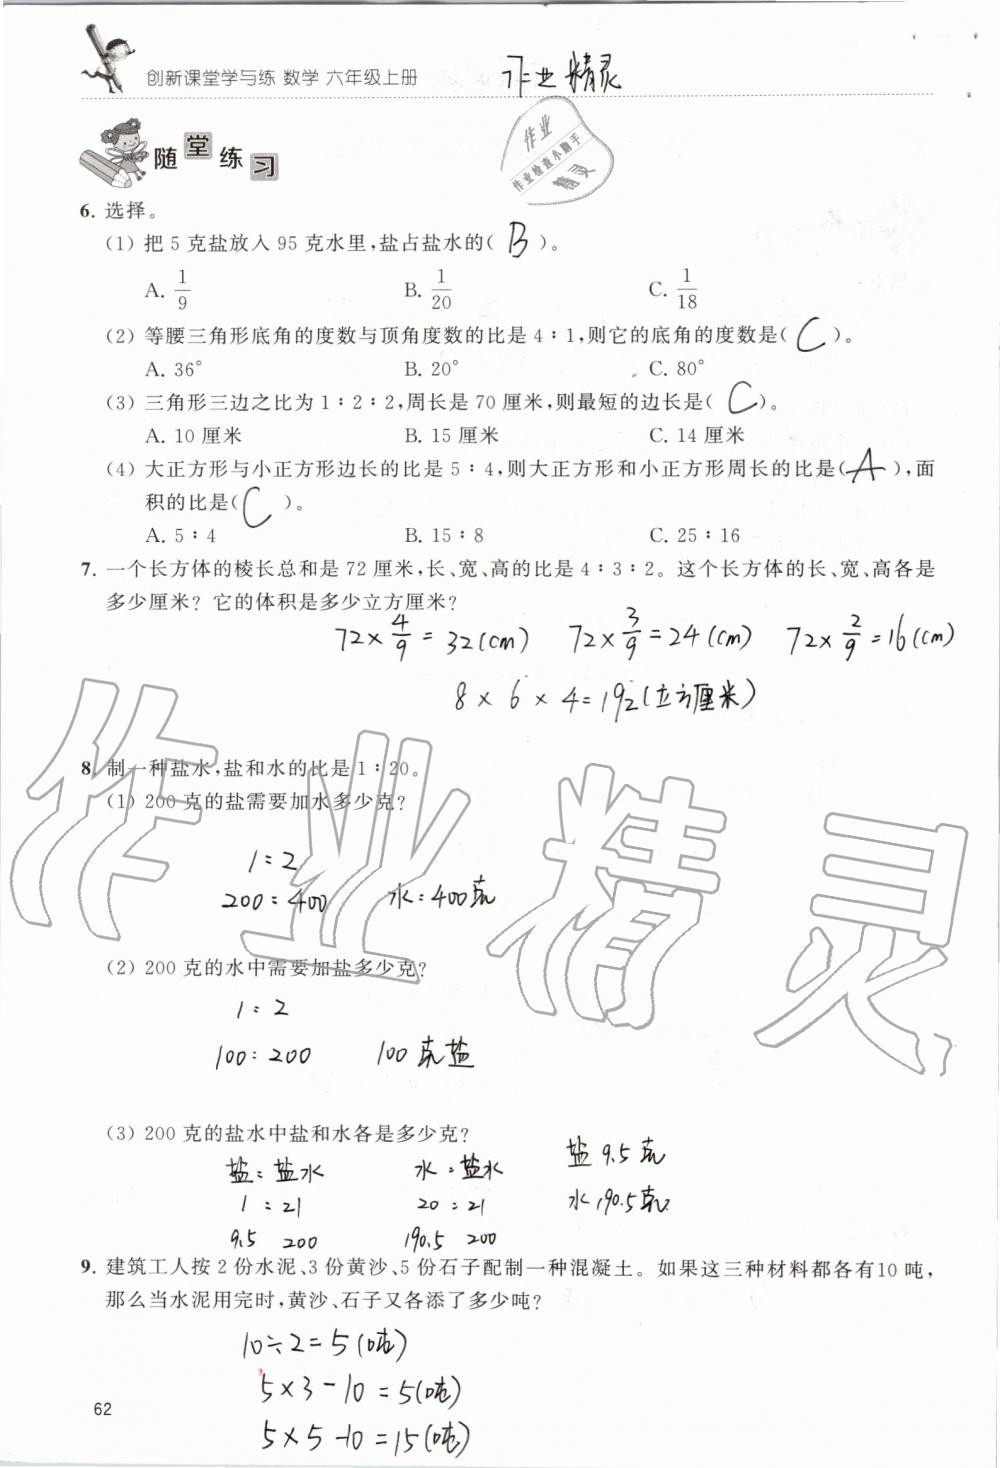 创新课堂学与练 数学 六年级上册
作业精灵
作业
作业检查小助手
精灵
随堂练习
6. 选择。
(1) 把 5 克盐放入 95 克水里,盐占盐水的( B )。
A. 1/9 B. 1/20 C. 1/18
(2) 等腰三角形底角的度数与顶角度数的比是 4∶1,则它的底角的度数是( C )。
A. 36° B. 20° C. 80°
(3) 三角形三边之比为 1∶2∶2,周长是 70 厘米,则最短的边长是( C )。
A. 10 厘米 B. 15 厘米 C. 14 厘米
(4) 大正方形与小正方形边长的比是 5∶4,则大正方形和小正方形周长的比是( A ),面
积的比是( C )。
A. 5∶4 B. 15∶8 C. 25∶16
7. 一个长方体的棱长总和是 72 厘米,长、宽、高的比是 4∶3∶2。这个长方体的长、宽、高各是
多少厘米? 它的体积是多少立方厘米?
72×4/9=32(cm) 72×3/9=24(cm) 72×2/9=16(cm)
8×6×4=192(立方厘米)
8. 制一种盐水,盐和水的比是 1∶20。
(1) 200 克的盐需要加水多少克?
1:2
200:400 水:400克
(2) 200 克的水中需要加盐多少克?
1:2
100:200 100克盐
(3) 200 克的盐水中盐和水各是多少克?
盐:盐水 水:盐水 盐 9.5克
1:21 20:21 水190.5克
9.5 200 190.5 200
9. 建筑工人按 2 份水泥、3 份黄沙、5 份石子配制一种混凝土。如果这三种材料都各有10 吨,
那么当水泥用完时,黄沙、石子又各添了多少吨?
10÷2=5(吨)
5×3-10=5(吨)
5×5-10=15(吨)
62
作业精灵